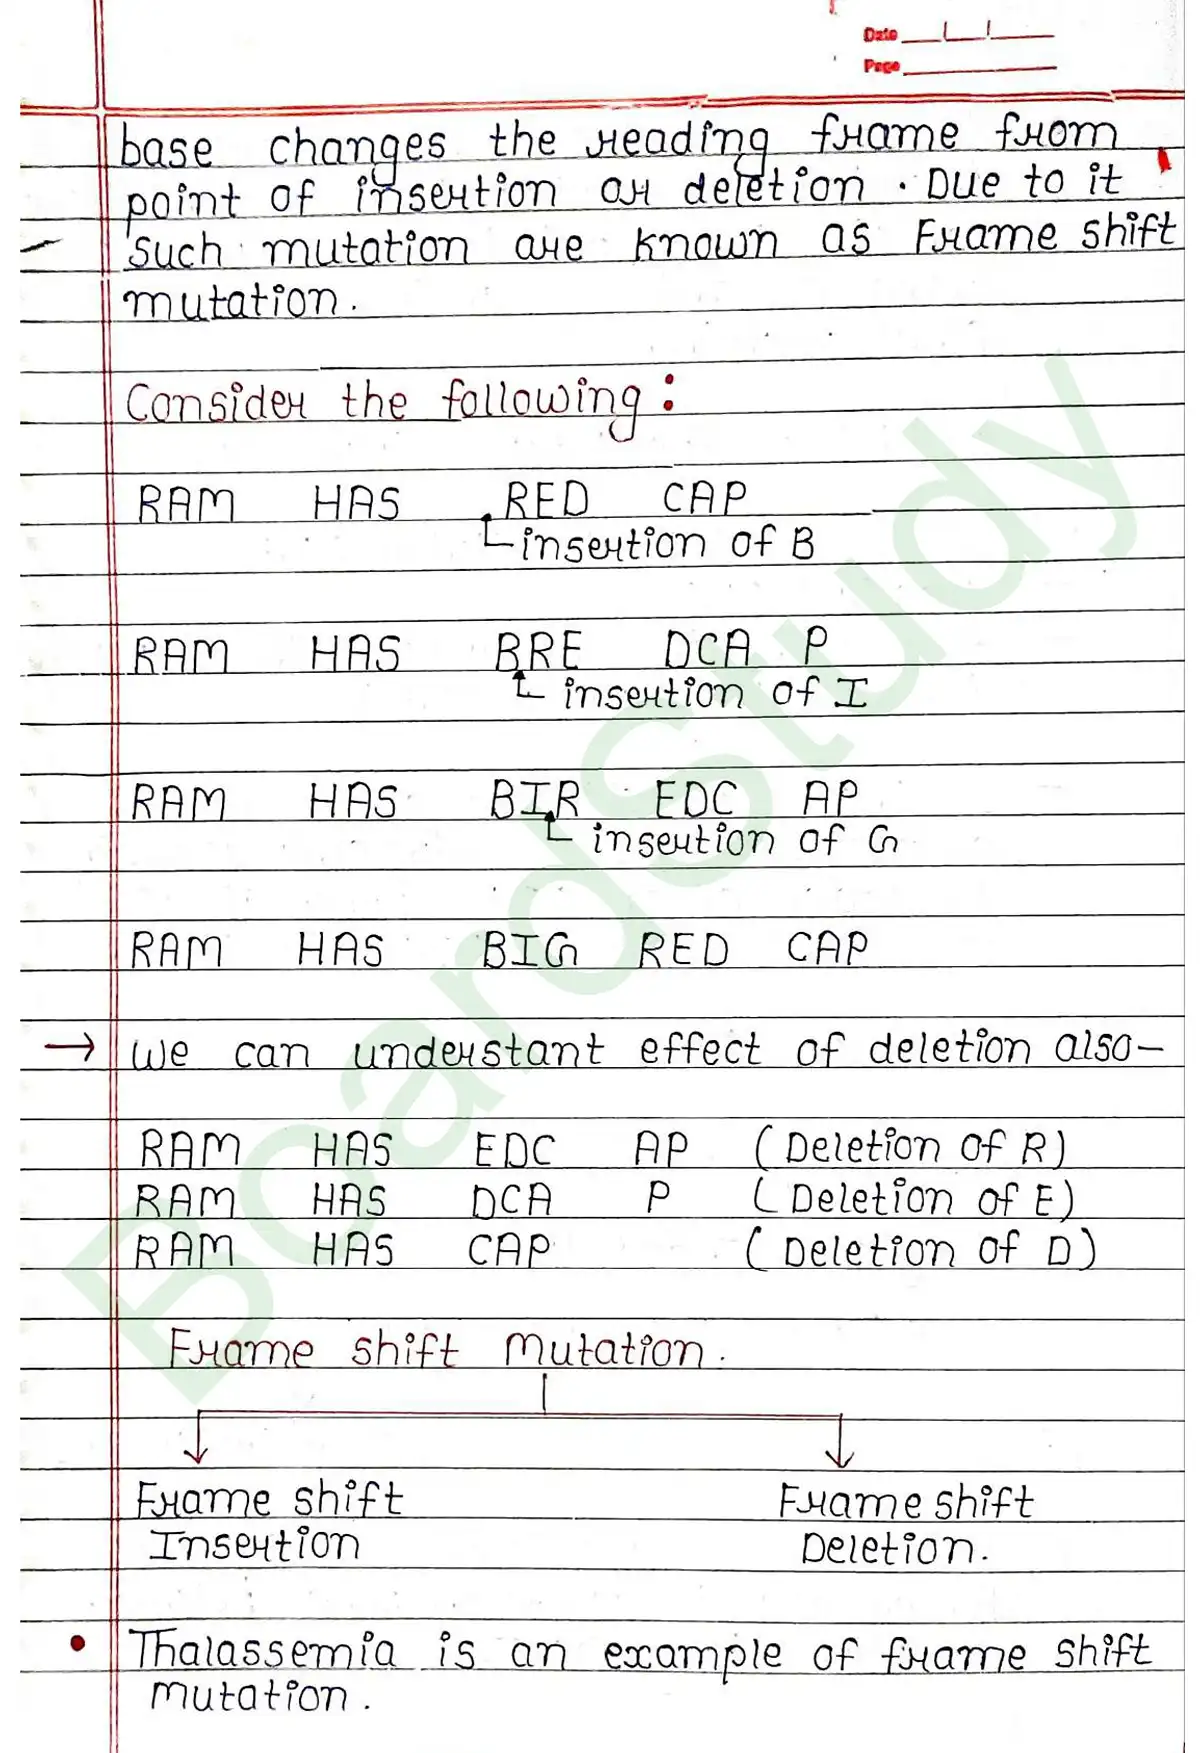 Date
Page
base changes the reading frame from
point of insertion or deletion. Due to it
such mutation are known as Frame shift
mutation.
Consider the following:
RAM HAS RED CAP
insertion of B
RAM HAS BRE DCA P
insertion of I
RAM HAS BIR EDC AP
insertion of G
RAM HAS BIG RED CAP
→ we can understant effect of deletion also-
RAM HAS EDC AP (Deletion of R)
RAM HAS DCA P (Deletion of E)
RAM HAS CAP (Deletion of D)
Frame shift Mutation.
Frame shift Frame shift
Insertion Deletion.
• Thalassemia is an example of frame shift
mutation.
BoardStudy